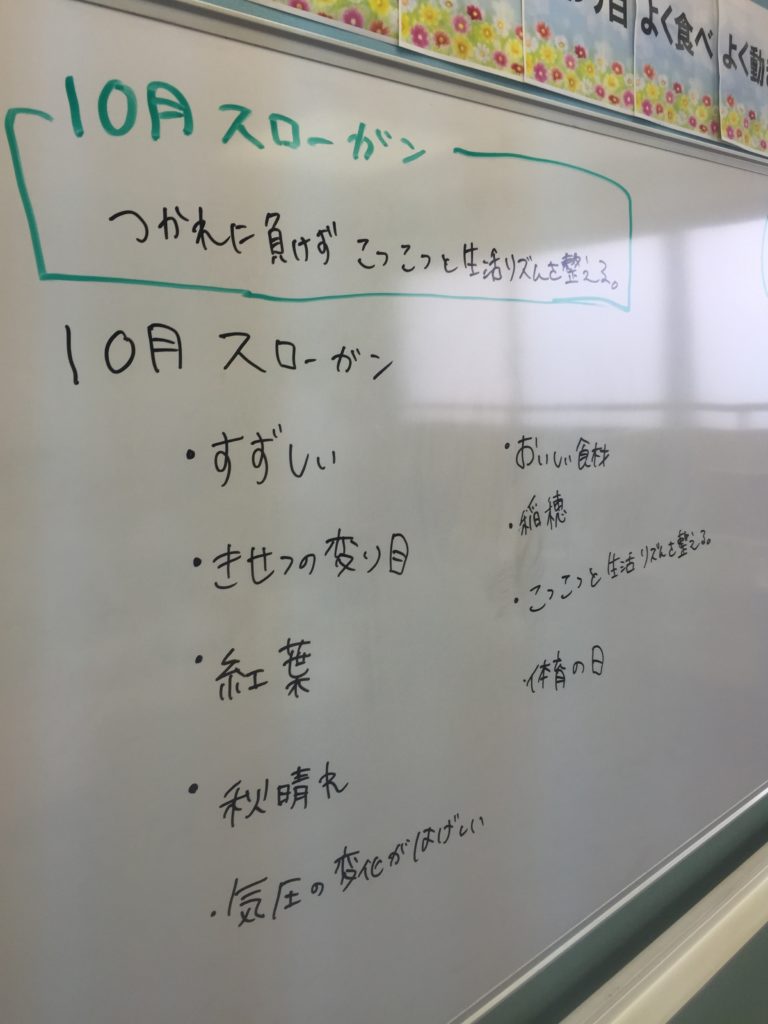 よく食べ
よく動
10月 スローガン
つかれに負けず こつこつと生活リズムを整える。
10月 スローガン
・すずしい
・きせつの変り目
・紅葉
・秋晴れ
・気圧の変化がはげしい
・おいしい食材
・稲穂
・こつこつと 生活リズムを整える。
・体育の日